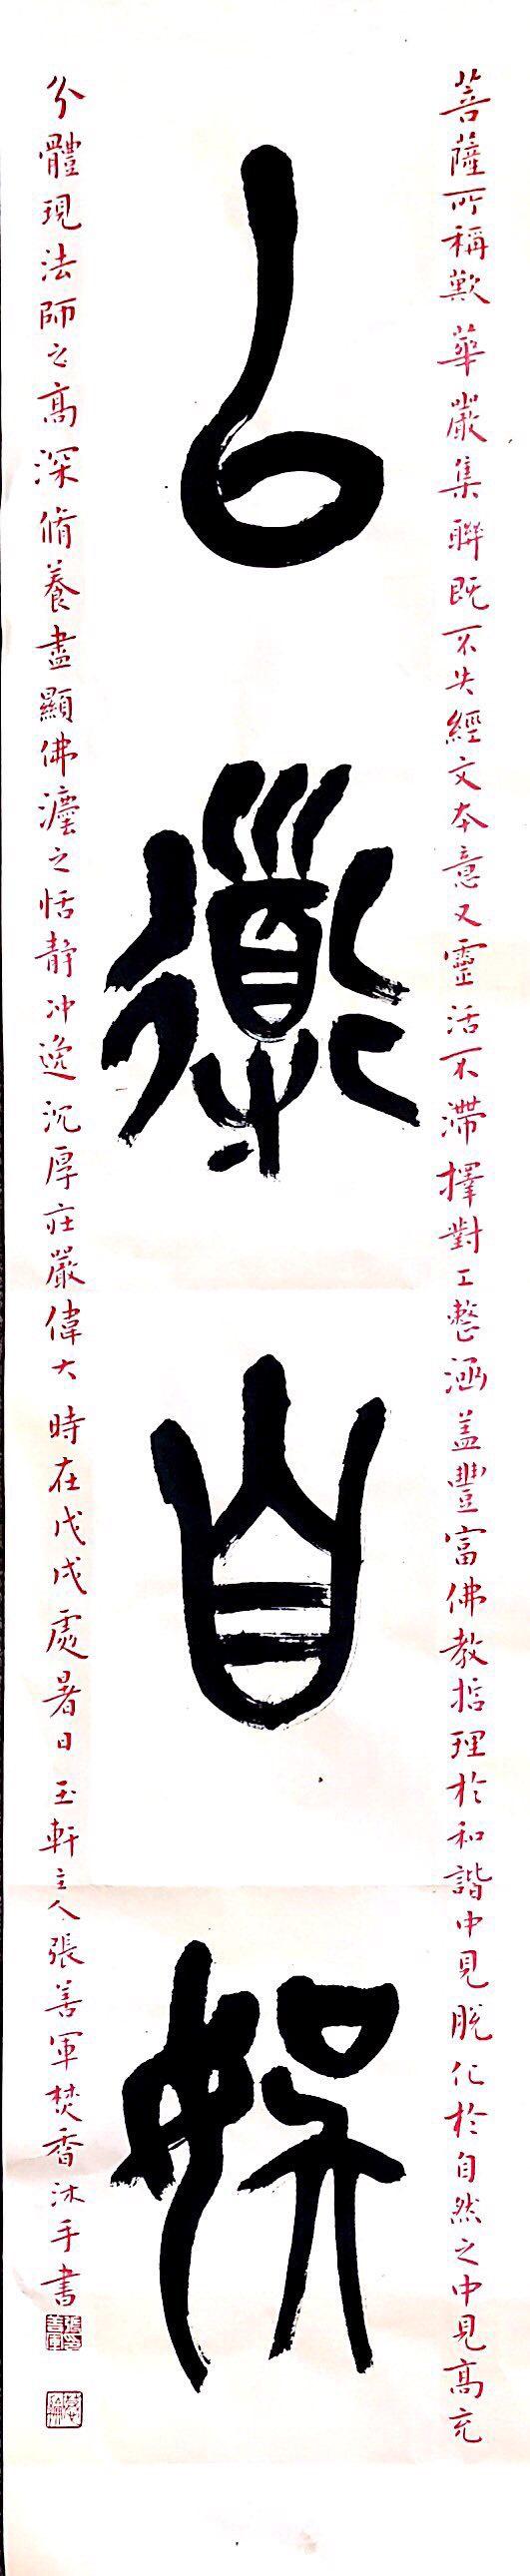 菩薩所稱歎華嚴集聯既不失經文本意又靈活不滯擇對工整涵蓋豐富佛教哲理於和諧中見脫化於自然之中見高充
以道自娛
分體現法師之高深脩養盡顯佛灋之恬静冲逸沉厚莊嚴偉大時在戊戌處暑日玉軒主人張善軍焚香沐手書